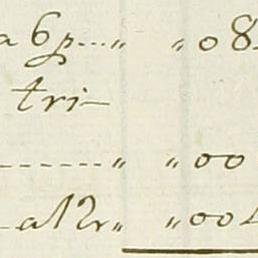 a 6p...„ „ 08
tri-
-------„ „ 00
al 2r„ „ 004